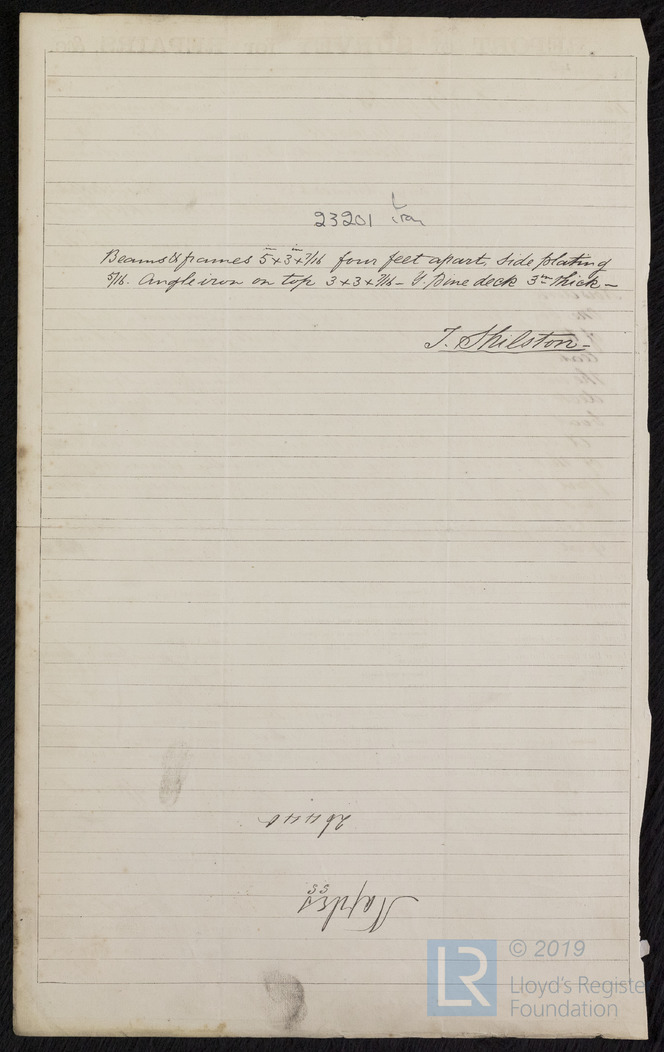 23201 Iron
Beams & frames 5 x 3 x 7/16 four feet apart, side plating
5/16. Angle iron on top 3 x 3 x 7/16 – Y. Pine deck 3 in thick –
T. Shilston –
26440
Naples
SS
© 2019
LR
Lloyd's Registe
Foundation